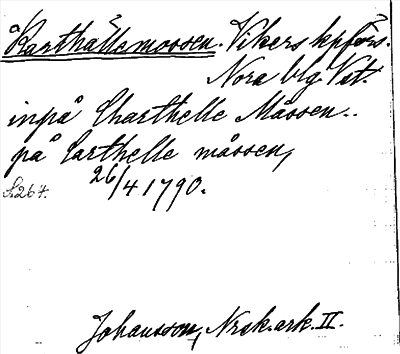 Karthällemossen. Vikers kpförs.
Nora blg Vstl.
inpå Charthelle Måssen..
på Carthelle måssen,
26/4 1790.
S. 267.
Johansson, Nrsk.ark. II.